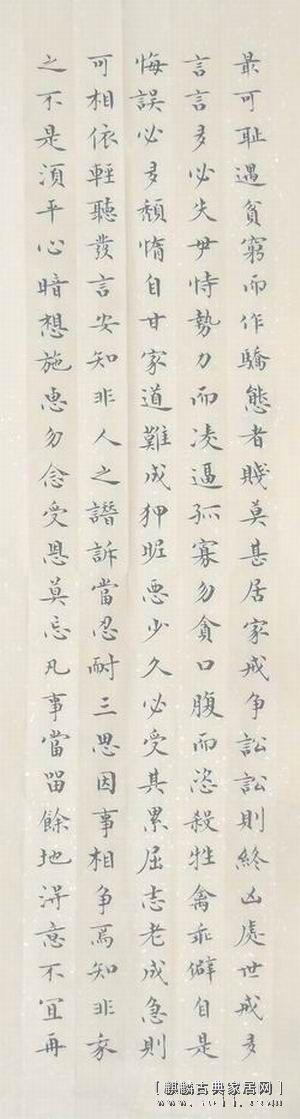 最可耻遇貧窮而作驕態者賤莫甚居家戒争訟訟則終凶處世戒多
言言多必失毋恃勢力而凌逼孤寡勿貪口腹而恣殺牲禽乖僻自是
悔誤必多頹惰自甘家道難成狎昵悪少久必受其累屈志老成急則
可相依輕聽發言安知非人之譖訴當忍耐三思因事相争焉知非我
之不是須平心暗想施惠勿念受恩莫忘凡事當留餘地得意不宜再
[麒麟古典家居网]